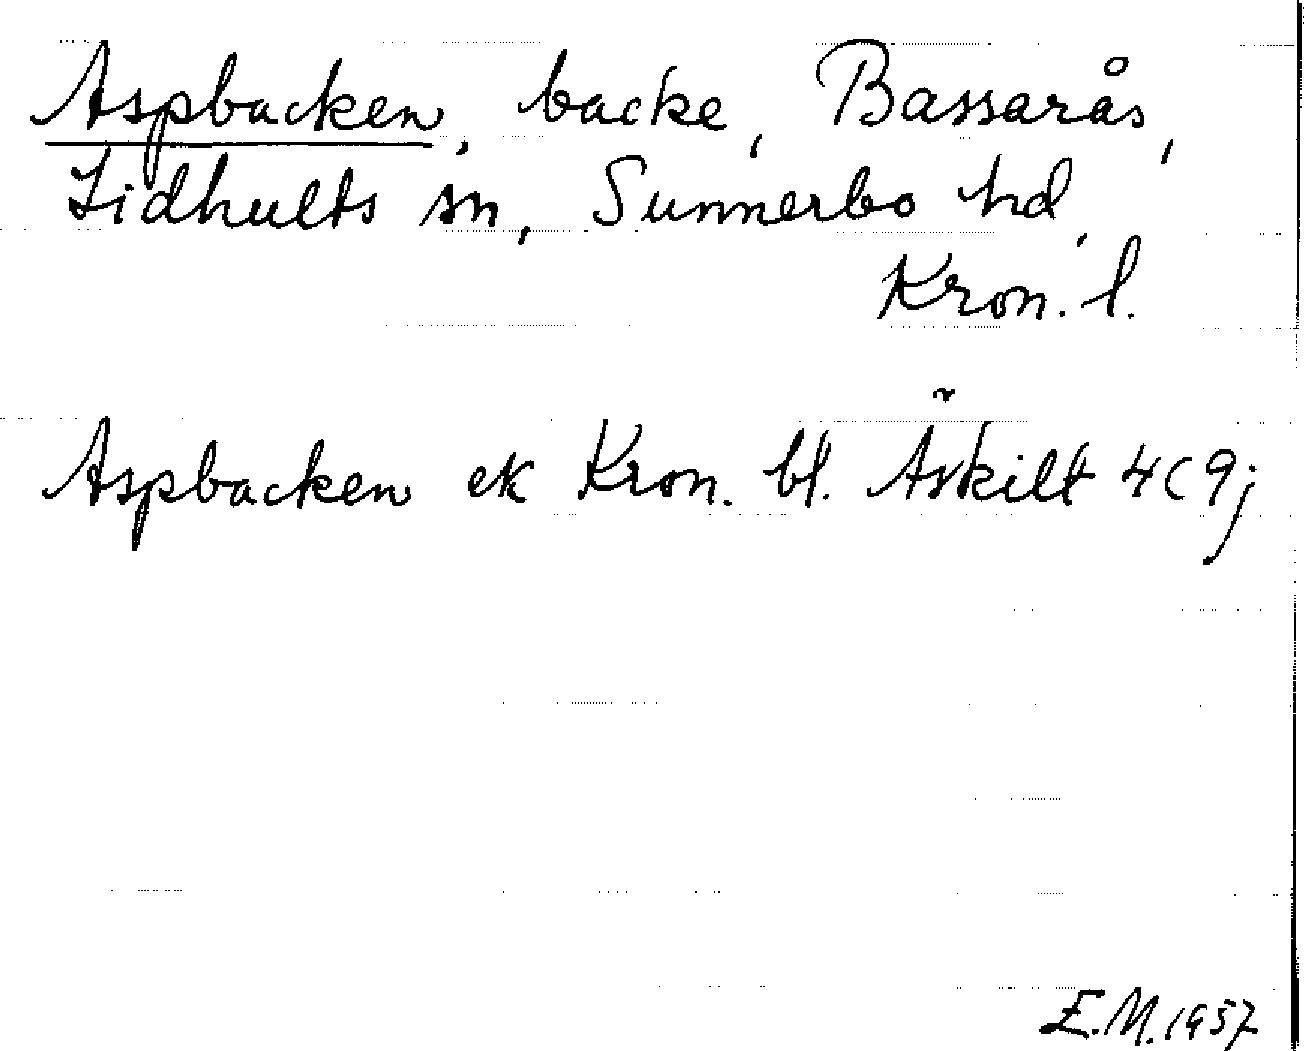 Aspbacken, backe, Bassarås,
Lidhults sn, Sunnerbo hd,
Kron. l.
Aspbacken ek Kron. bl. Åskilt 4C9j
E.M. 1957